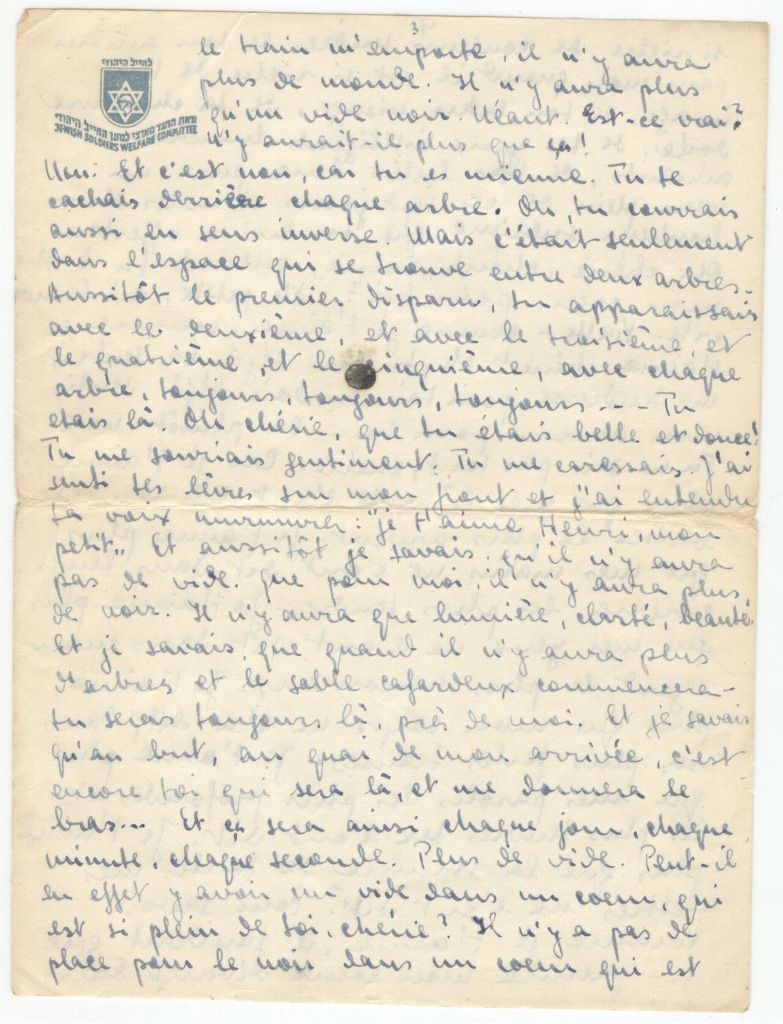 3
לחייל היהודי
מאת הועד הארצי למען החייל היהודי
JEWISH SOLDIERS WELFARE COMMITTEE
le train m'emporte, il n'y aura
plus de monde. Il n'y aura plus
qu'un vide noir. Néant. Est-ce vrai?
N'y aurait-il plus que ça!
Non. Et c'est non, car tu es mienne. Tu te
cachais derrière chaque arbre. Oh, tu courrais
aussi en sens inverse. Mais c'était seulement
dans l'espace qui se trouve entre deux arbres.
Aussitôt le premier disparu, tu apparaissais
avec le deuxième, et avec le troisième, et
le quatrième, et le cinquième, avec chaque
arbre, toujours, toujours, toujours --- Tu
étais là. Oh chérie, que tu étais belle et douce!
Tu me souriais gentiment. Tu me caressais. J'ai
senti tes lèvres sur mon front et j'ai entendu
ta voix murmurer: "je t'aime Henri, mon
petit„ Et aussitôt je savais qu'il n'y aura
pas de vide. Que pour moi il n'y aura plus
de noir. Il n'y aura que lumière, clarté, beauté.
Et je savais que quand il n'y aura plus
d'arbres et le sable cafardeux commencera -
tu seras toujours là, près de moi. Et je savais
qu'au but, au quai de mon arrivée, c'est
encore toi qui sera là, et me donnera le
bras... Et ça sera ainsi chaque jour, chaque
minute, chaque seconde. Plus de vide. Peut-il
en effet y avoir un vide dans un coeur, qui
est si plein de toi, chérie? Il n'y a pas de
place pour le noir dans un coeur qui est